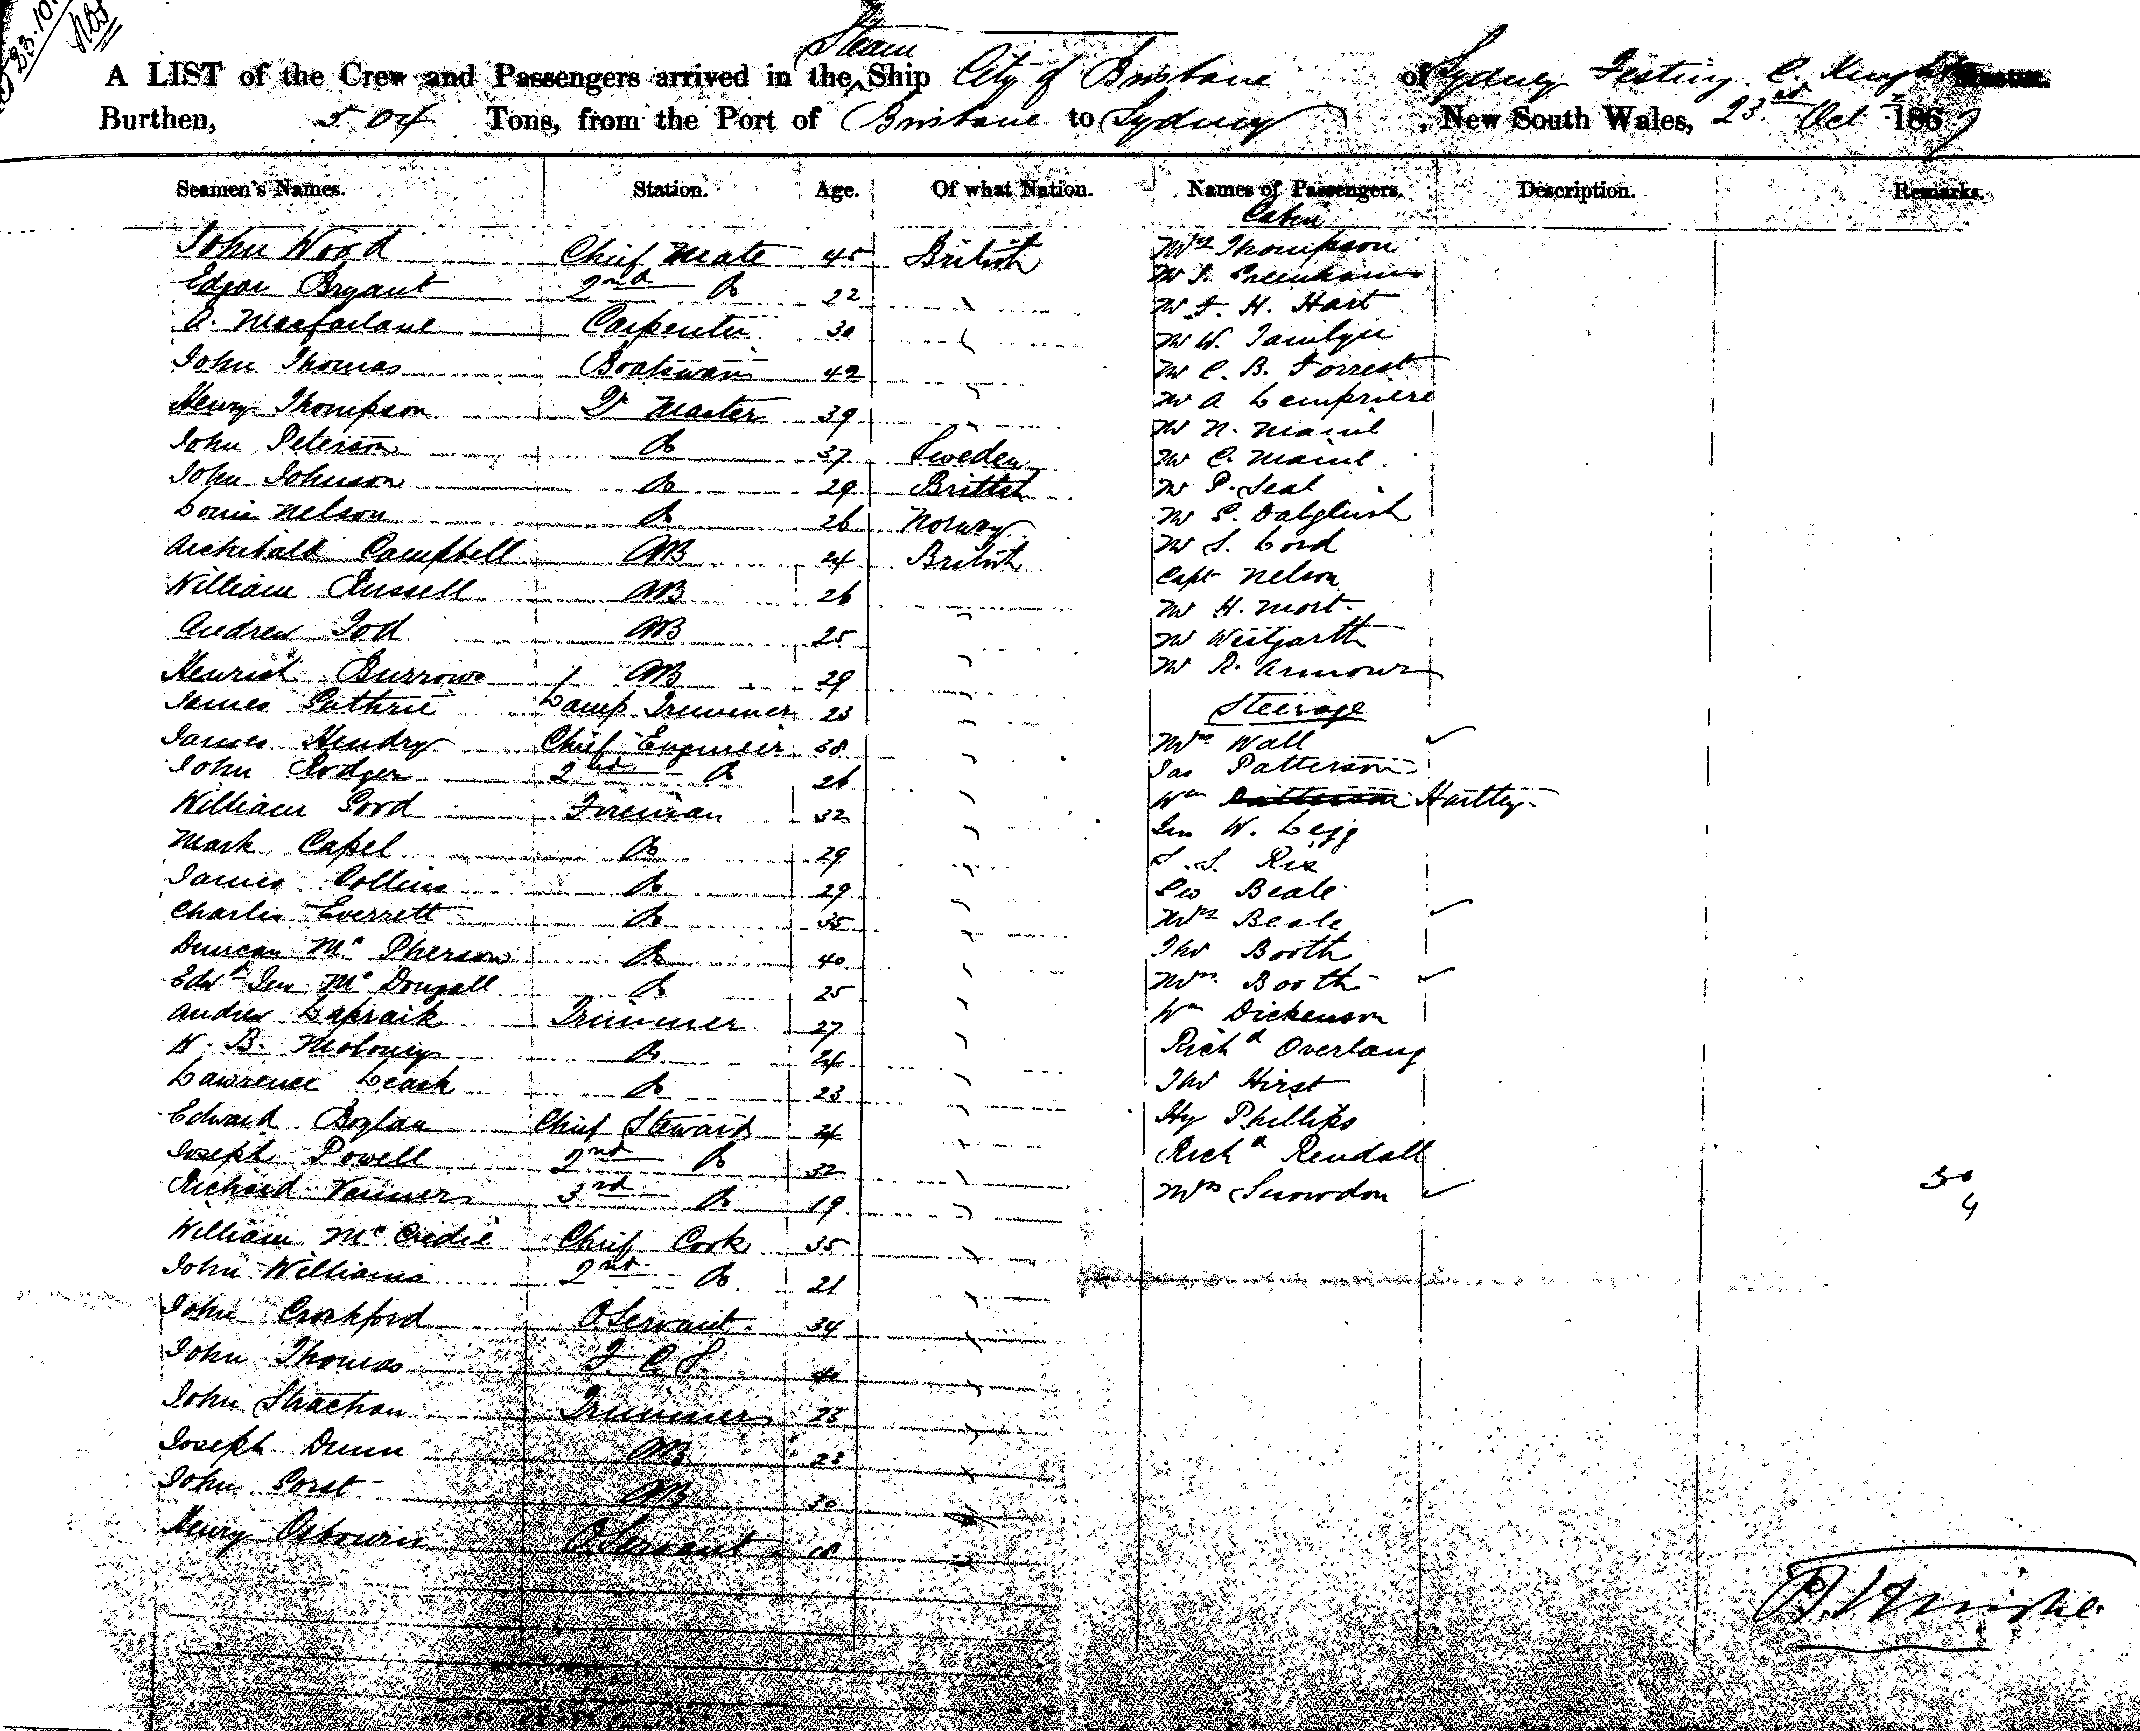 23.10
Steam
A LIST of the Crew and Passengers arrived in the Ship City of Brisbane of Sydney
Burthen, 504 Tons, from the Port of Brisbane to Sydney, New South Wales, 23rd Oct 1867
Seamen's Names. Station. Age. Of what Nation. Names of Passengers. Description. Remarks.
Cabin
John Wood Chief Mate 45 British Mrs Thompson
Edgar Bryant 2nd Do 22 Mr
A. Macfarlane Carpenter 30 Mr F. H. Hart
John Thomas Boatswain 42 Mr W.
Henry Thompson Qr Master 39 Mr C. B. Forrest
John Peterson Do 37 Sweden Mr A Lempriere
John Johnson Do 29 British Mr N.
Louis Nelson Do 26 Norway Mr C.
Archibald Campbell AB 24 British Mr P. Seal
William Russell AB 26 Mr S. Dalgleish
Andrew Tod AB 25 Mr S. Lord
Henrich Burrows AB 29 Capt Nelson
James Guthrie Lamp Trimmer 23 Mr H. Mort
James Hendry Chief Engineer 38 Mr Westgarth
John Rodger 2nd Do 26 Mr R. Armour
Steerage
William Gord Fireman 32 Mrs Wall
Mark Capel Do 29 Jas Patterson
James Collins Do 29 Wm Hartley
Charles Everrett Do 35 W. Legg
Duncan McPherson Do 40 Rix
Edwd McDougall Do 25 Geo Beale
Andrew Lapraik Trimmer 27 Mrs Beale
W. B. Moloney Do 24 Thos Booth
Lawrence Leash Do 23 Mrs Booth
Edward Boylan Chief Steward 24 Wm Dickenson
Joseph Powell 2nd Do 32 Richd Overlang
Richard Venners 3rd Do 19 Thos Hirst
William McCredie Chief Cook 35 Hy Phillips
John Williams 2nd Do 21 Richd Rendall
John Crockford O Servant 34 Mrs Snowdon
John Thomas 40
John Strachan Trimmer
Joseph Dunn AB 23
John Gorst AB 30
Henry Osbourn O Servant 18